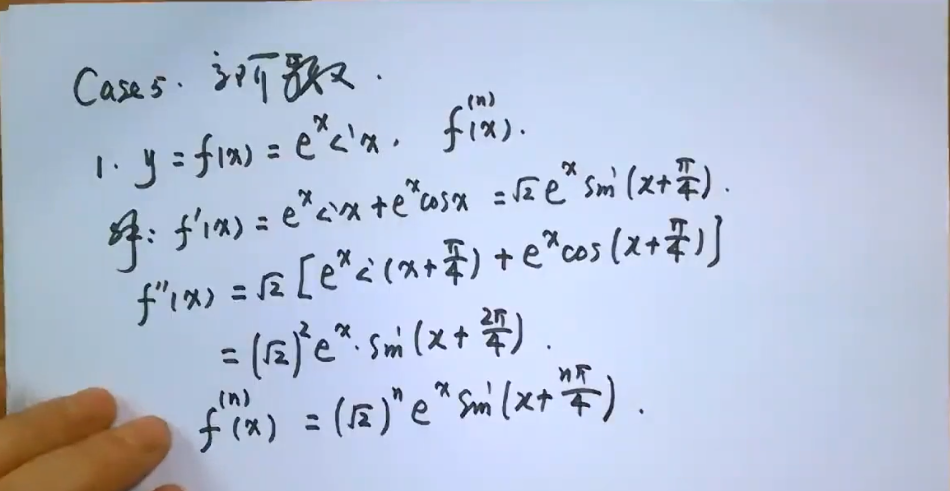 Case 5. 高阶导数.
1. y = f(x) = e^x sin x, f^(n)(x).
解: f'(x) = e^x sin x + e^x cos x = √2 e^x sin(x + π/4).
f''(x) = √2 [e^x sin(x + π/4) + e^x cos(x + π/4)]
= (√2)^2 e^x · sin(x + 2π/4).
f^(n)(x) = (√2)^n e^x sin(x + nπ/4).